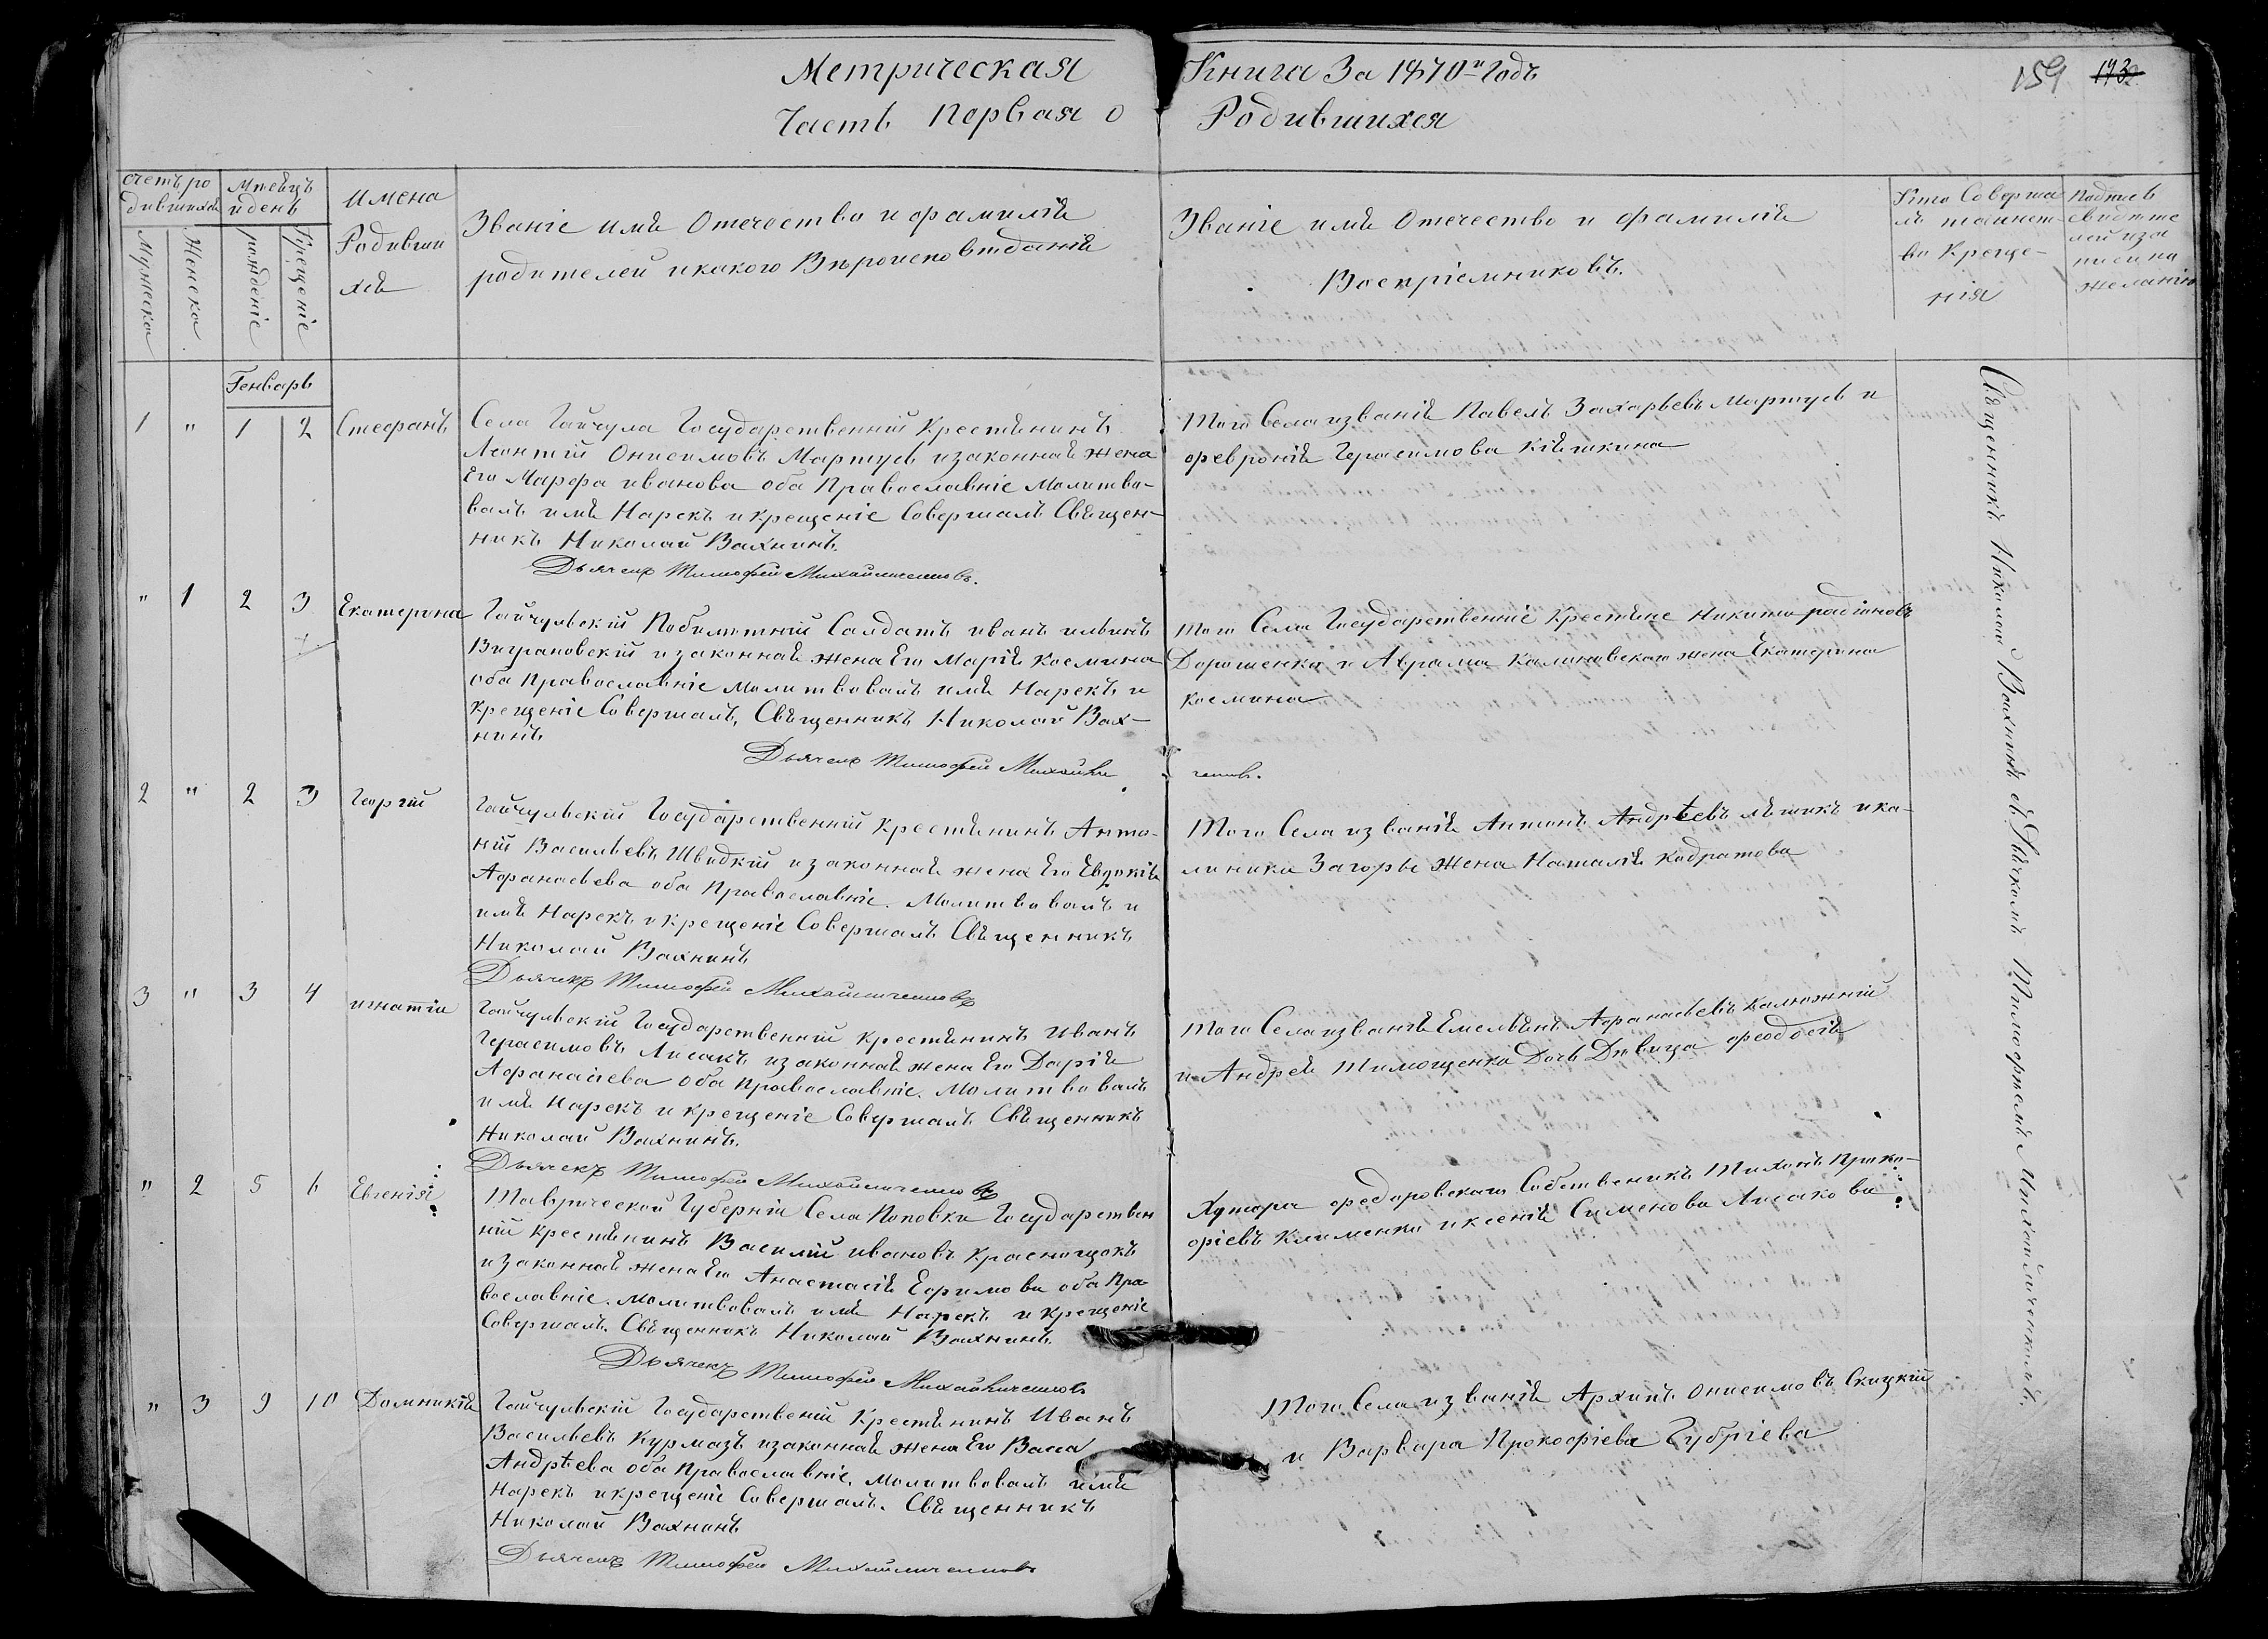 Метрическая Книга За 1870й Годъ
159 173
Часть Первая О Родившихся
Счетъ ро
дившихся
Мѣсяцъ
и день
Имена
Родивши
хся
Мужеска
Женска
рожденіе
Крещеніе
Званіе имя Отечество и фамилія
родителей и какого Вѣроисповѣданія
Званіе имя Отечество и фамилія
Воспріемниковъ.
Кто Соверша
лъ таинст-
во Креще-
нія
Подпись
свидѣте
лей иза
писи по
желанію
Генварь
1 " 1 2 Стефанъ
Села Гайчула Государственній Крестянинъ
Леонтій Онисимовъ Мартусь и законная жена
Его Марфа иванова оба Православніе Молитво-
валъ имя Нарекъ и крещеніе Совершалъ Священ-
никъ Николай Вахнинъ.
Дьячекъ Тимофей Михайличенковъ.
Того Села и званія Павелъ Захарьевъ Мартусь и
февронія Герасимова Кіяшкина
" 1 2 3 Екатерина
Гайчульскій Побилетній Салдатъ иванъ ильинъ
Виграновскій и законная жена Его Марія Космина
оба Православніе Молитвовалъ имя Нарекъ и
крещеніе Совершалъ, Священникъ Николай Вах-
нинъ
Дьячекъ Тимофей Михайли
ченковъ.
Того Села Государственніе Крестяне Никита радіоновъ
Дорошенко и Аврама Калиновскаго жена Екатерина
Космина
2 " 2 3 Георгій
Гайчульскій Государственній Крестянинъ Анто-
ній Васильевъ Швидкій и законная жена Его Евдокія
Афанасьева оба Православніе. Молитвовалъ и
имя Нарекъ и крещеніе Совершалъ Священникъ
Николай Вахнинъ
Дьячекъ Тимофей Михайличенковъ
Того Села и званія Антонъ Андрѣевъ лѣшикъ и ка-
линика Загоры Жена Наталія кодратова
3 " 3 4 игнатій
Гайчульскій Государственній Крестянинъ Иванъ
Герасимовъ Лисакъ и законная жена Его Дарія
Афанасіева оба православніе. Молитвовалъ
имя Нарекъ и крещеніе Совершалъ Священникъ
Николай Вахнинъ.
Дьячекъ Тимофей Михайличенковъ
Того Села и званія Емельянъ Афанасьевъ Калюжній
и Андрея Тимощенка Дочь Дѣвица феодосія
" 2 5 6 Евгенія
Таврической Губерніи Села Поповки Государствен
ній крестянинъ Василій ивановъ Краснощокъ
и законная жена Его Анастасія Ефимова оба Пра
вославніе. Молитвовалъ имя Нарекъ и крещеніе
Совершалъ. Священникъ Николай Вахнинъ
Дьячекъ Тимофей Михайличенковъ
Хутора федоровскаго Собственикъ Тихонъ Проко-
фіевъ Клименко и ксенія Сименова Лисакова
" 3 9 10 Домникія
Гайчульскій Государственій Крестянинъ Иванъ
Васильевъ Курмазъ и законная жена Его Васса
Андрѣева оба Православніе, Молитвовалъ имя
Нарекъ и крещеніе Совершалъ. Священникъ
Николай Вахнинъ
Дьячекъ Тимофей Михайличенковъ
Того Села и званія Архипъ Онисимовъ Скицкій
и Варвара Прокофіева Губріева
Священникъ Николай Вахнинъ съ Дьячкомъ Тимофтемъ Михайличенкомъ.